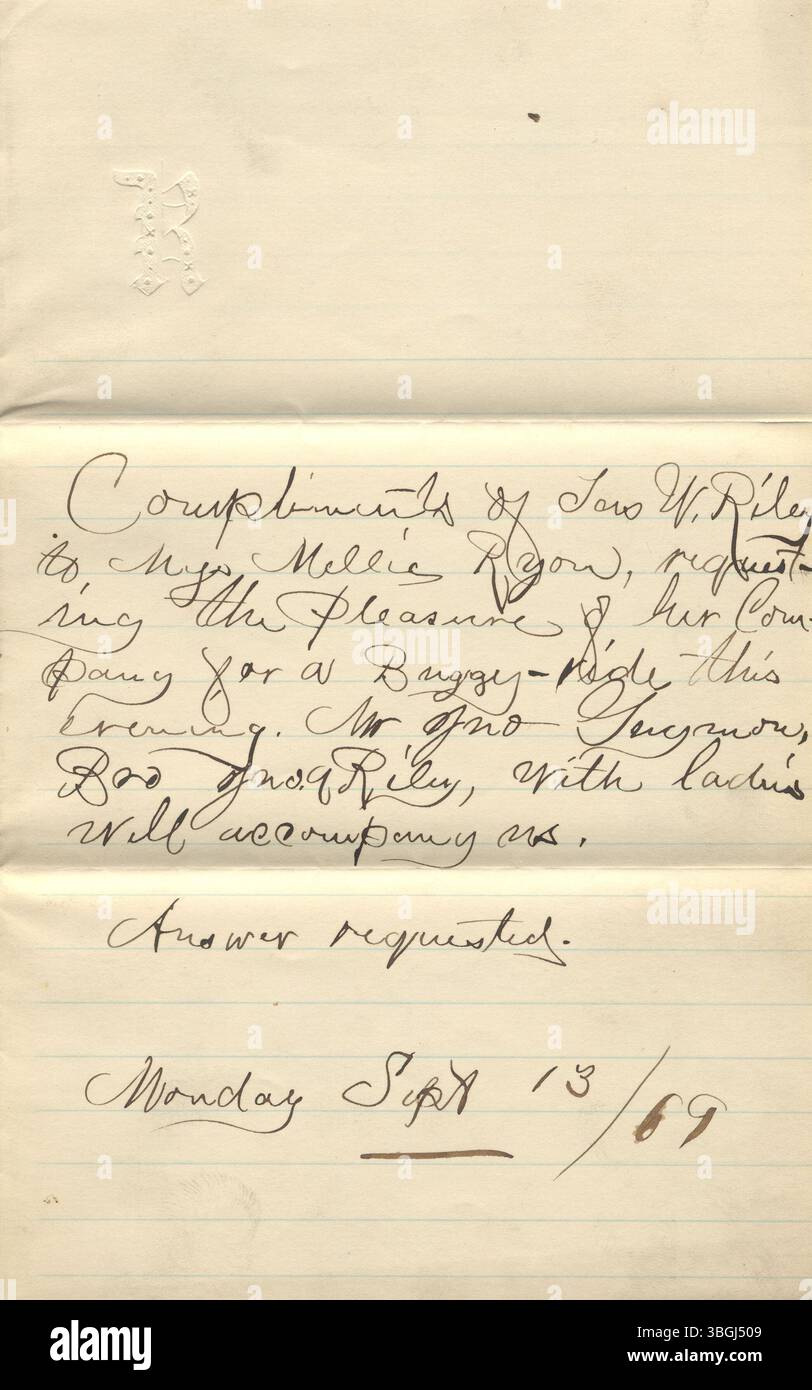 R
Compliments of Jas W. Riley
to Miss Nellie Ryon, request-
ing the pleasure of her Com-
pany for a Buggy-ride this
evening. Mr Jno
Bro Jno. A Riley, with ladies
will accompany us.
Answer requested.
Monday Sept 13/69
alamy
Image ID: 3BGJ509
www.alamy.com